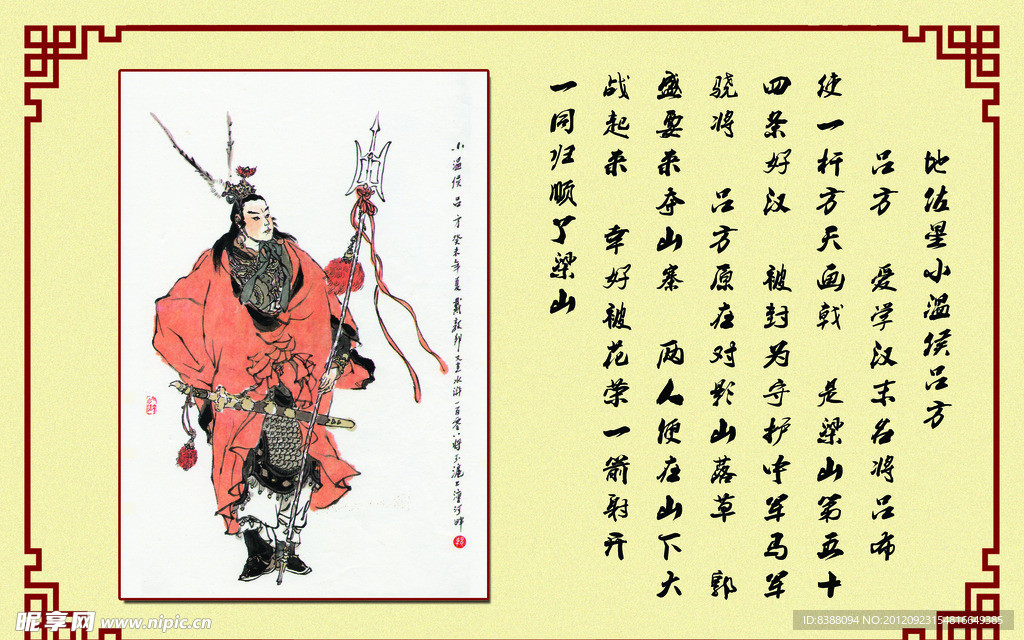 地佐星小温侯吕方
吕方 爱学汉末名将吕布
使一杆方天画戟 是梁山第五十
四条好汉 被封为守护中军马军
骁将 吕方原在对影山落草 郭
盛要来夺山寨 两人便在山下大
战起来 幸好被花荣一箭射开
一同归顺了梁山
小温侯吕方 癸未年夏 戴敦邦又画水浒一百零八将于沪上
昵享网 www.nipic.cn
ID:8388094 NO:20120923154816649385